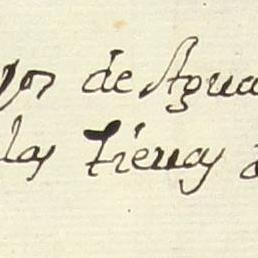 de Agua
las tierras